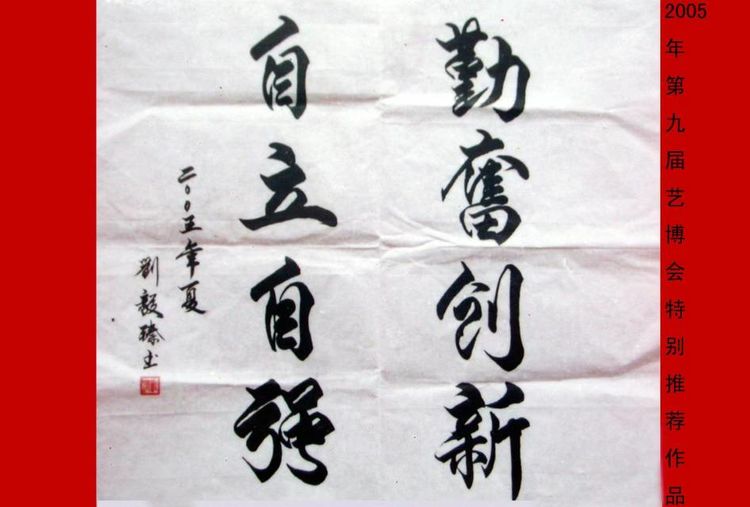 勤奮创新
自立自强
二〇〇五年夏
劉毅臻书
2005年第九届艺博会特别推荐作品